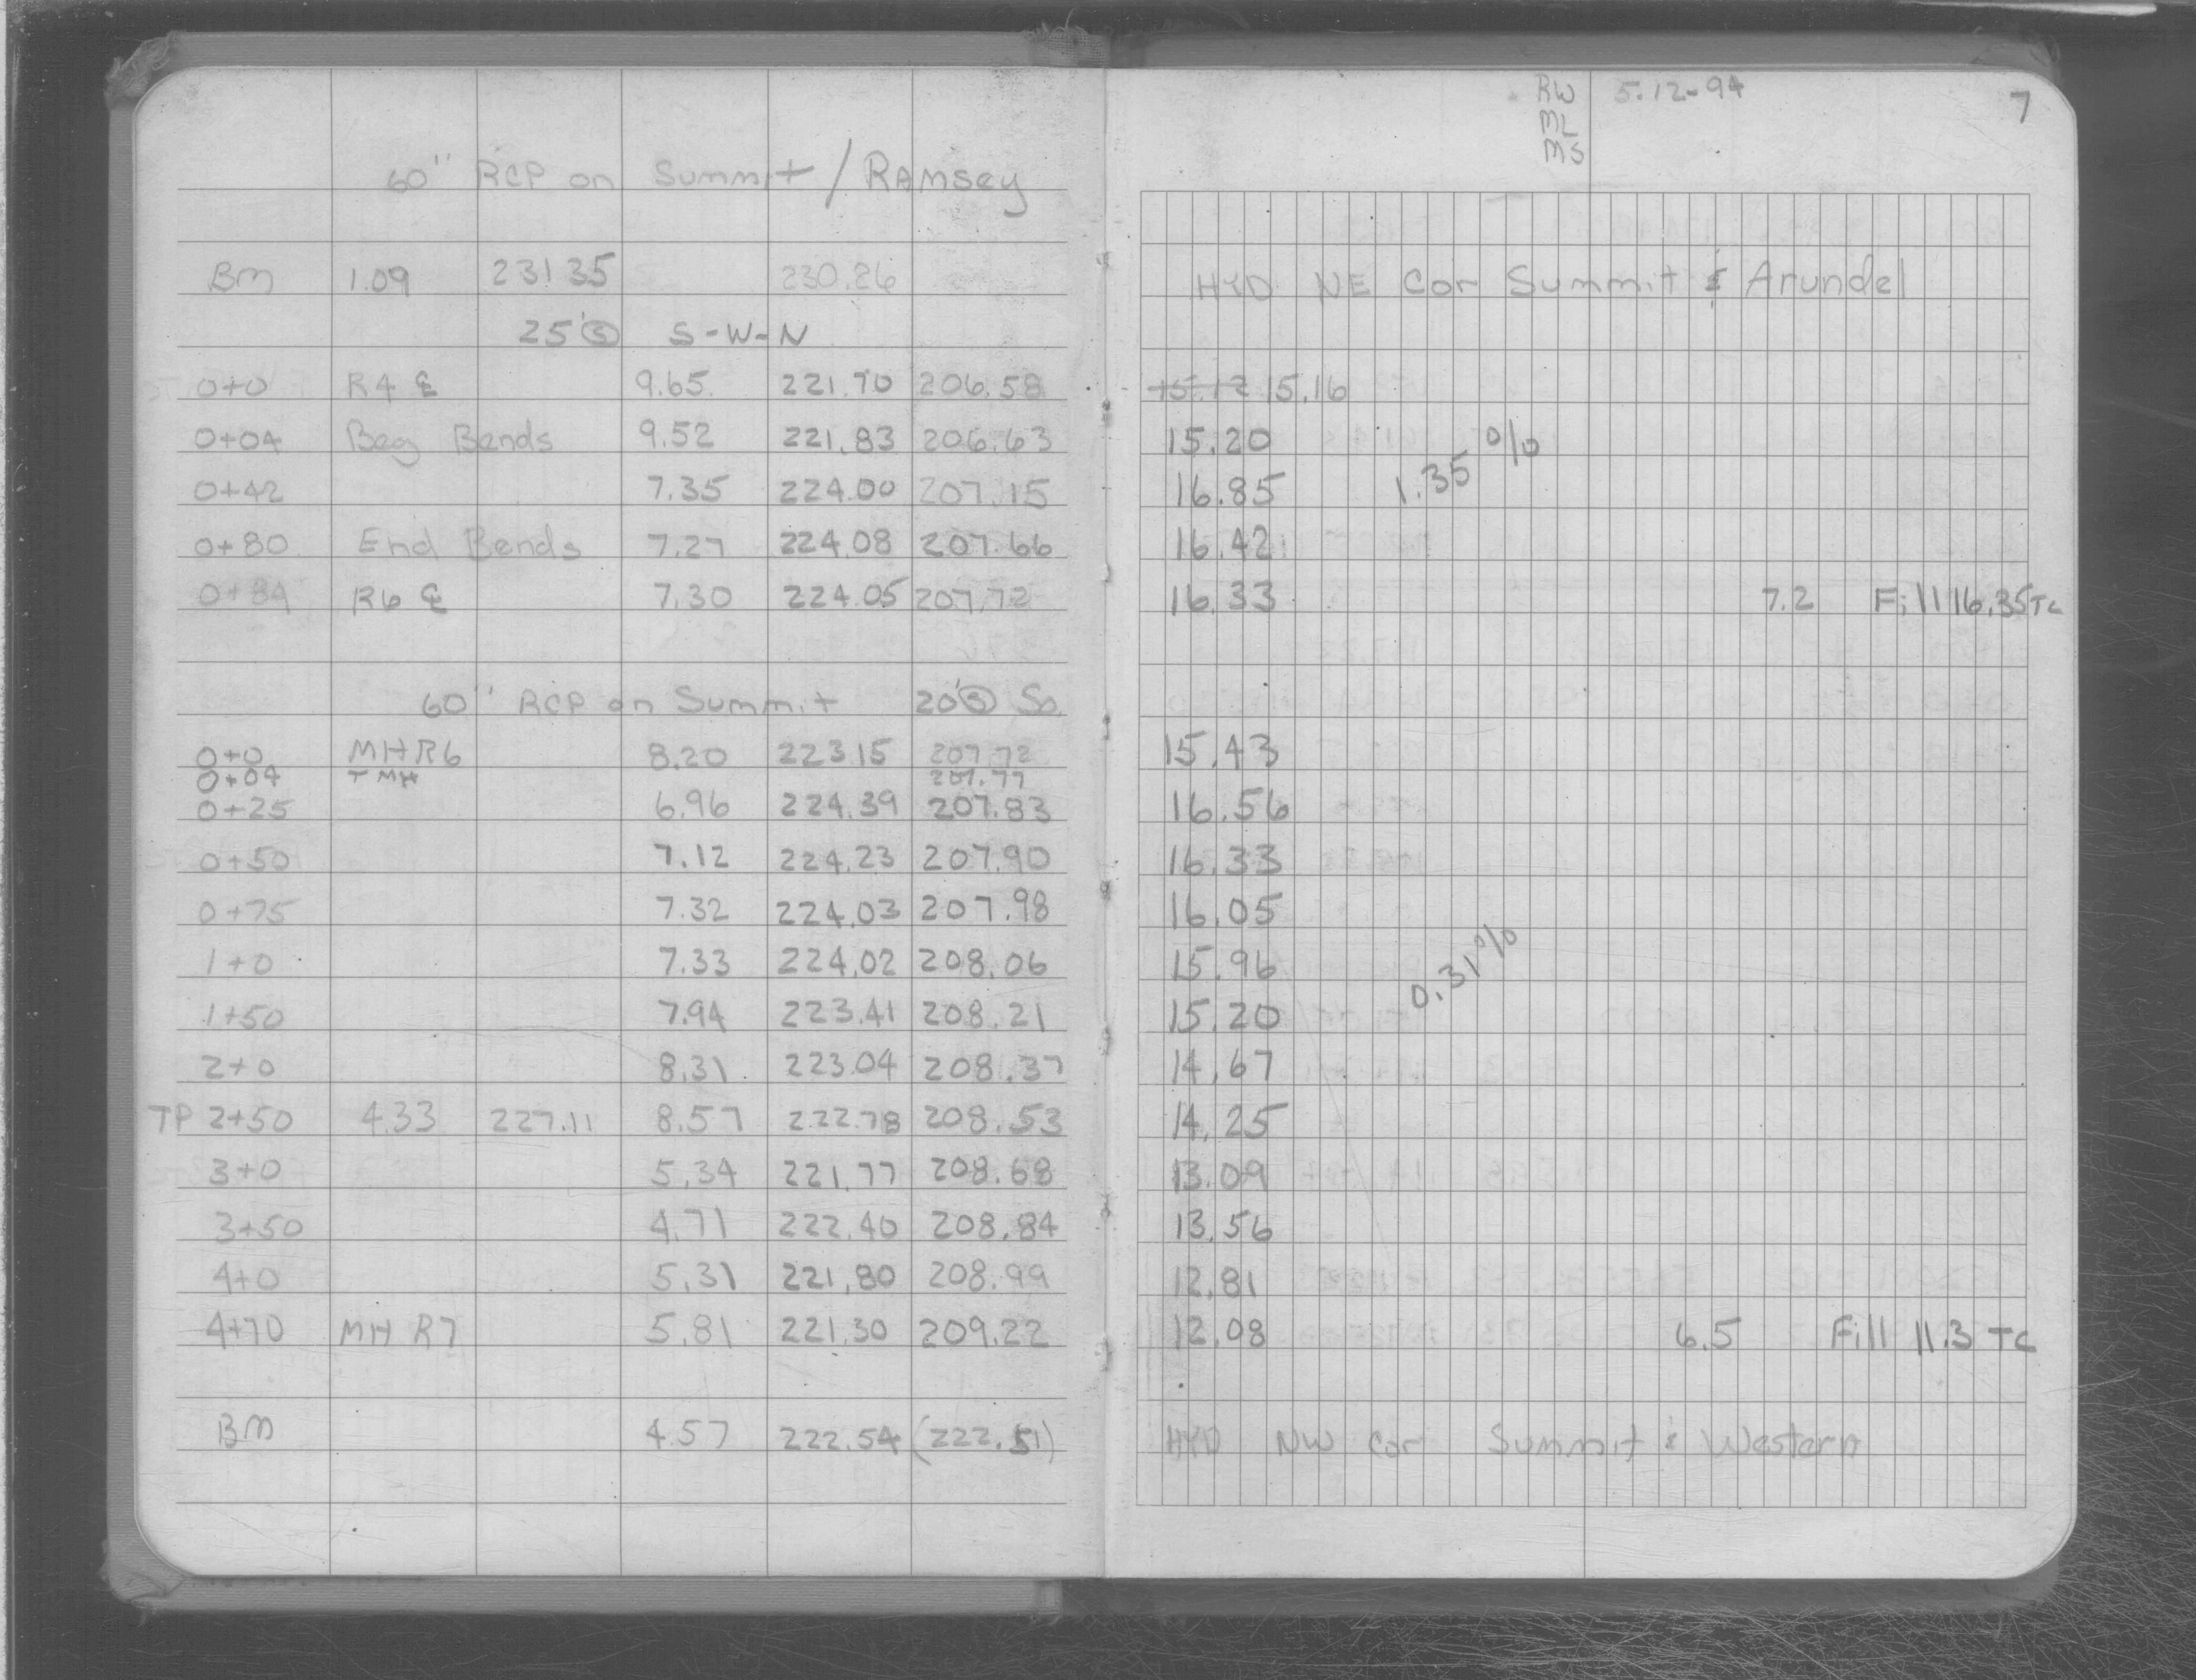 RW 5.12-94 7
ML
MS
60" RCP on Summit / Ramsey
BM 1.09 231.35 230.26 HYD NE Cor Summit & Arundel
25' Ⓢ S-W-N
0+0 R4 ℄ 9.65 221.70 206.58 15.12 15.16
0+04 Beg Bends 9.52 221.83 206.63 15.20
0+42 7.35 224.00 207.15 16.85 1.35 %
0+80 End Bends 7.27 224.08 207.66 16.42
0+84 R6 ℄ 7.30 224.05 207.72 16.33 7.2 Fill 16.35 TC
60" RCP on Summit 20' Ⓢ So.
0+0 MH R6 8.20 223.15 207.72 15.43
0+04 T MH 207.77
0+25 6.96 224.39 207.83 16.56
0+50 7.12 224.23 207.90 16.33
0+75 7.32 224.03 207.98 16.05
1+0 7.33 224.02 208.06 15.96 0.31%
1+50 7.94 223.41 208.21 15.20
2+0 8.31 223.04 208.37 14.67
TP 2+50 4.33 227.11 8.57 222.78 208.53 14.25
3+0 5.34 221.77 208.68 13.09
3+50 4.71 222.40 208.84 13.56
4+0 5.31 221.80 208.99 12.81
4+70 MH R7 5.81 221.30 209.22 12.08 6.5 Fill 11.3 TC
BM 4.57 222.54 (222.51) HYD NW Cor Summit & Western